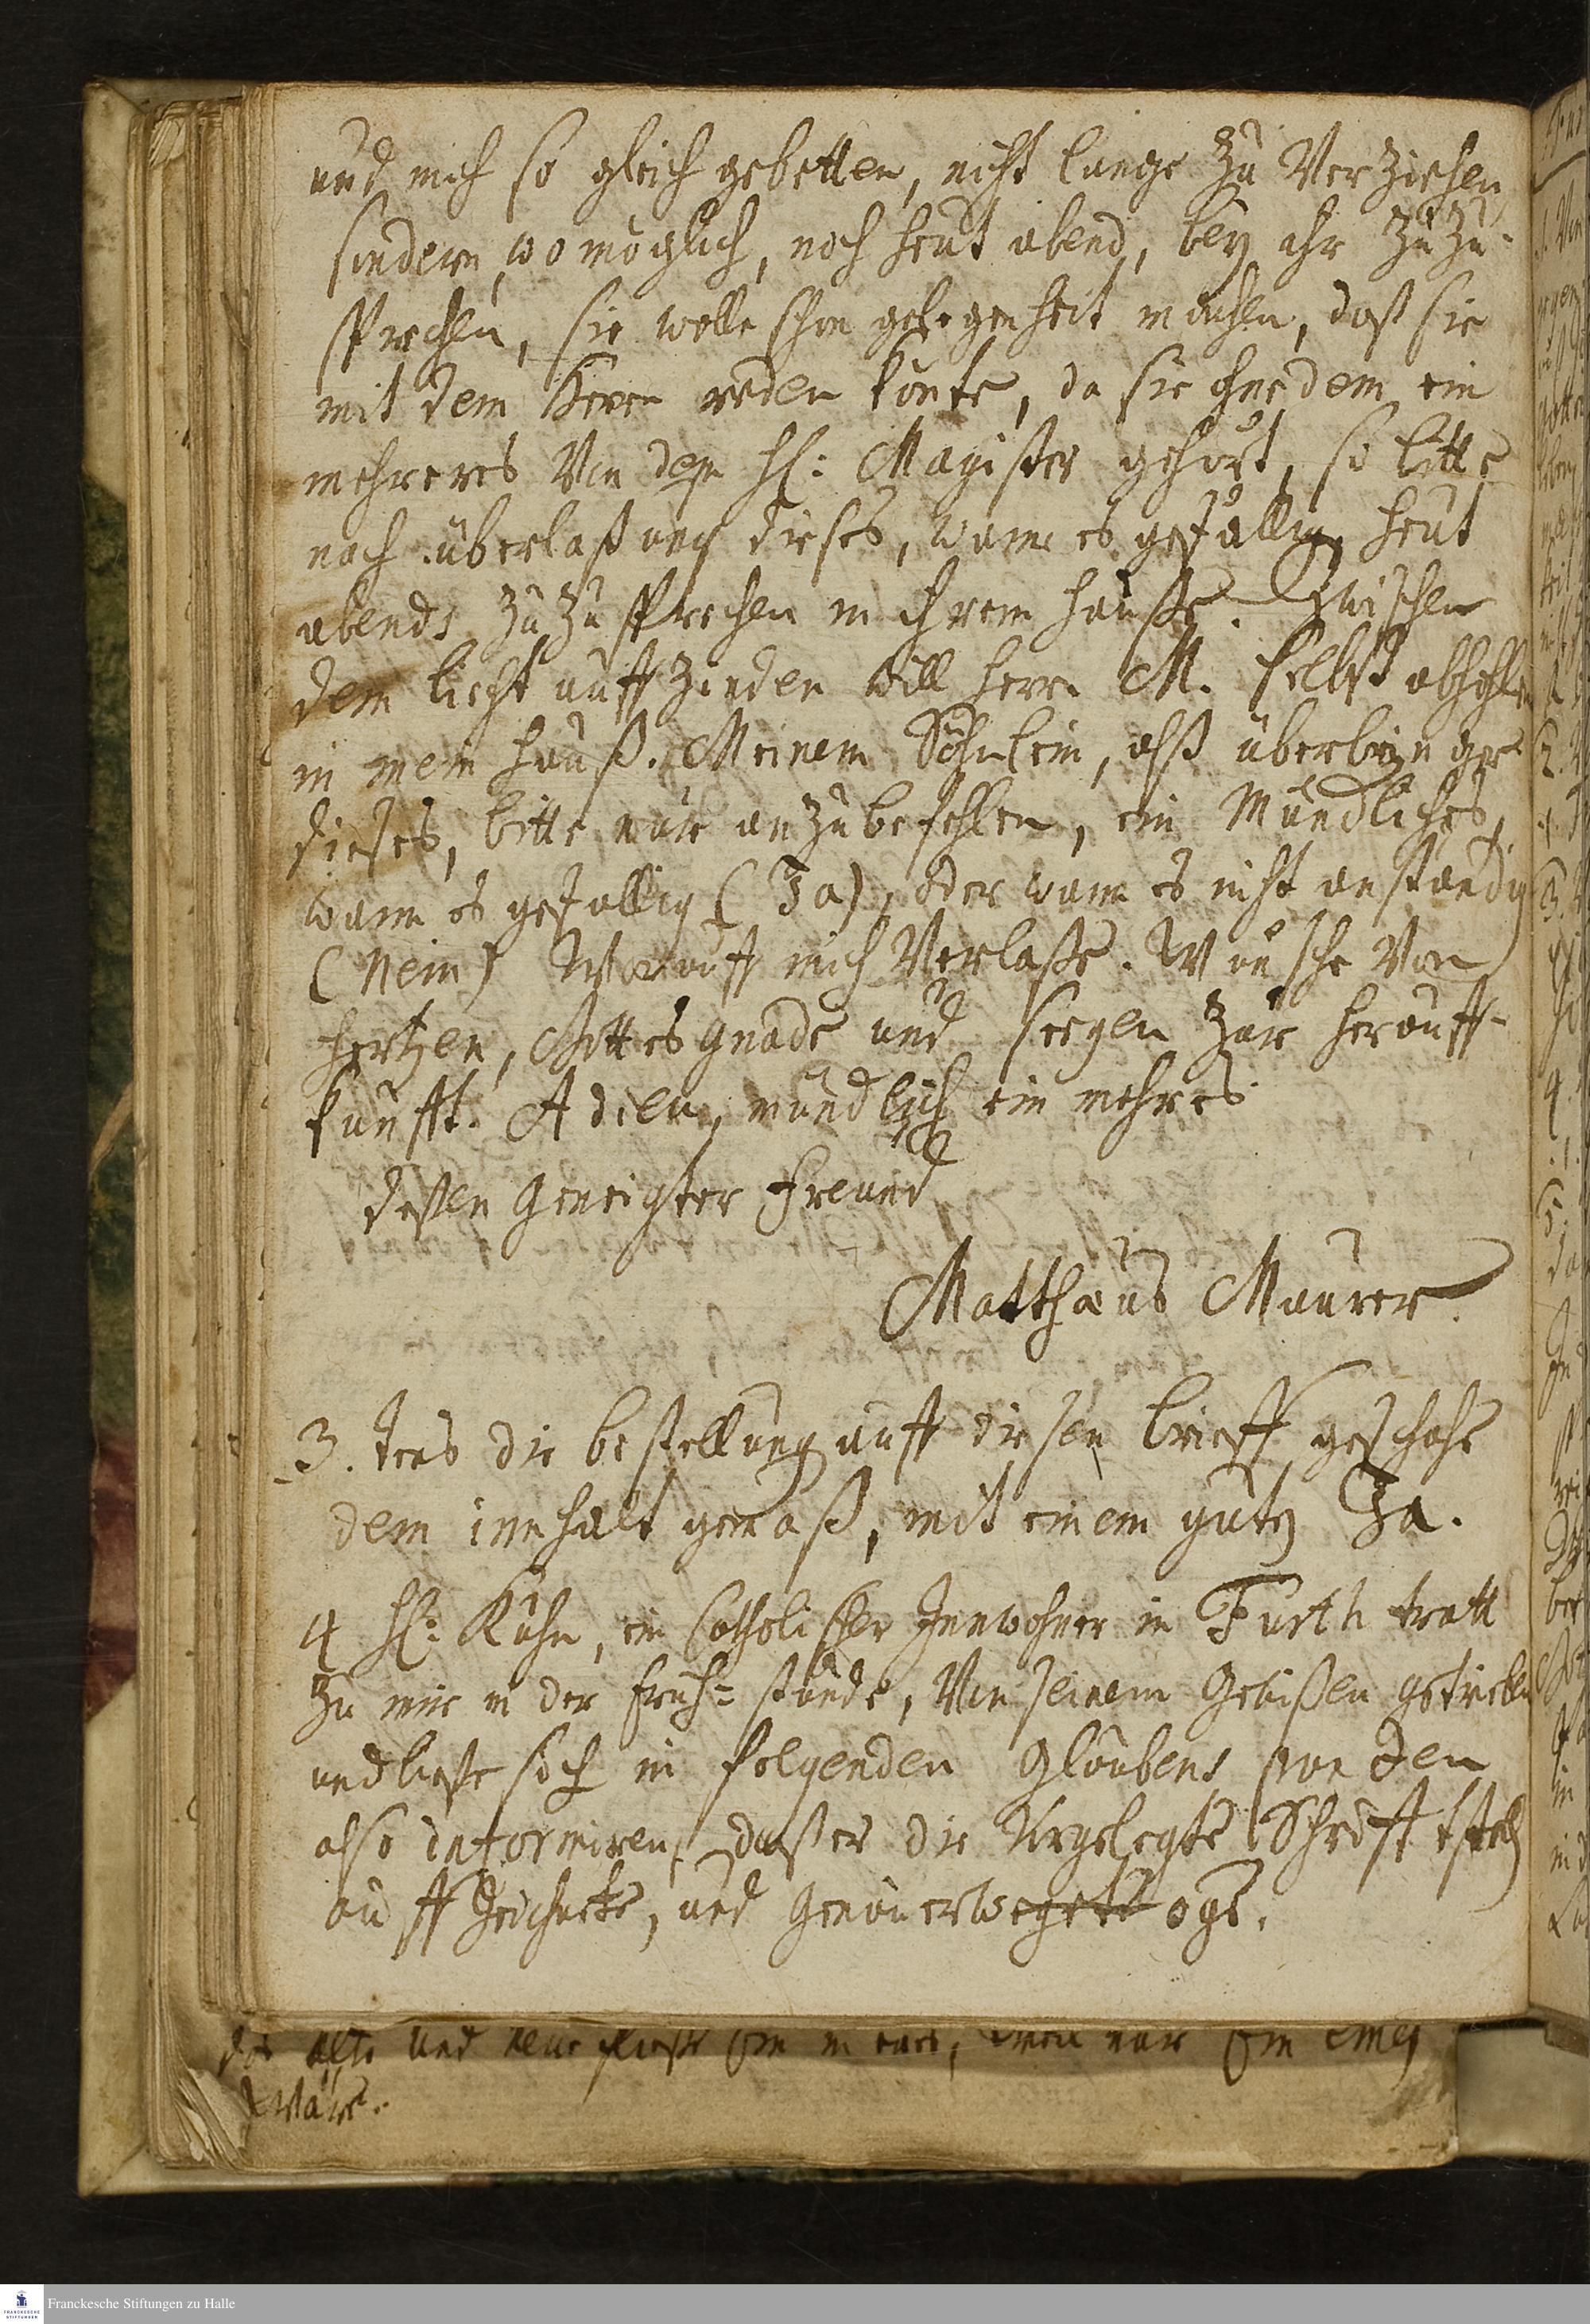 und mich so gleich gebetten, nicht lange zu Verziehen
sondern, wo möglich, noch heut abend, bey ihr zu zu-
sprechen, sie wolle schon gelegenheit machen, daß sie
mit dem Herrn reden könte, da sie ohne dem ein
mehreres Von dem H: Magister gehört, so bitte
nach überlaßung dieses, wann es gefällig heut
abends zu zu sprechen in ihrem hauße. Zwischen
dem licht auff zünden will Herr M. selbst abhohlen
in mein hauß. Meinem Söhnlein, alß überbringer
dieses, bitte nur anzubefehlen, ein Mündliches,
wann es gefällig (Ja), oder wann es nicht anständig
(Nein) Worauff mich Verlaße. Wünsche Von
hertzen, Gottes gnade und seegen zur herauff-
kunfft. Adieu, mündlich ein mehres
deßen Geneigter Freund
Matthäus Maurer.
3. tens die bestellung auff diesen brieff geschahe
dem innhalt gemäß, mit einem guten Ja.
4 H: Kühn, ein Catholischer Innwohner in Fürth tratt
zu mir in der früh-stunde, Von seinem Gewißen getrieben
und ließe sich in folgenden Glaubens
also informiren, daß er die Vorgelegte Schrifft
auff Zeichnete, und
das alte und neue
wäre.
Franckesche Stiftungen zu Halle